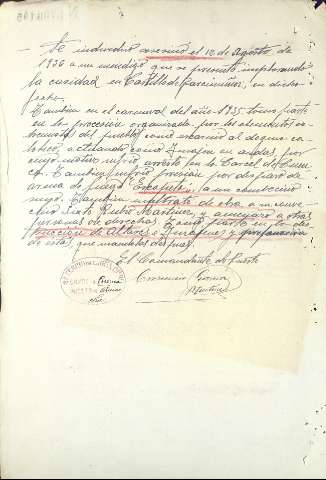 - Te individuo asesinó el 12 de Agosto de
1936 a un mendigo que se presentó implorando
la caridad en Castillo de Garcimuñoz, en dicha
fecha
Tambien en el carnaval del año 1935 tomó parte
en la procesion organizada por los elementos ex-
tremistas del pueblo como escarnio al dogma ca-
tolico, actuando como Imagen en andas, por
cuyo motivo sufrió arresto en la Carcel de Cuen-
ca. Tambien sufrió prision por disparo de
arma de fuego Escopeta, a un convecino
suyo. Tambien maltrató de obra, a un conve-
cino Sixto Rubio Martinez, y amenazó a otras
personas de derechas. Tomó parte en la des-
truccion de Altares e Imagenes y profanacion
de estas, que mandaba despues.
El Comandante de Puesto